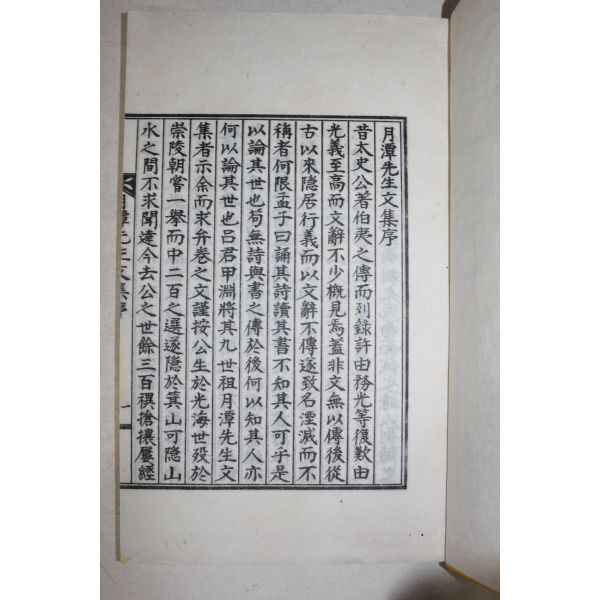 月潭先生文集序
昔太史公著伯夷之傳而列錄許由務光等復歎由
光義至高而文辭不少槪見焉盖非文無以傳後從
古以來隱居行義而以文辭不傳遂致名湮滅而不
稱者何限孟子曰誦其詩讀其書不知其人可乎是
以論其世也苟無詩與書之傳於後何以知其人亦
何以論其世也呂君甲淵將其九世祖月潭先生文
集者示余而求弁卷之文謹按公生於光海世歿於
崇陵朝嘗一擧而中二百之選遂隱於箕山可隱山
水之間不求聞達今去公之世餘三百禩搶攘屢經
月潭先生文集序
一